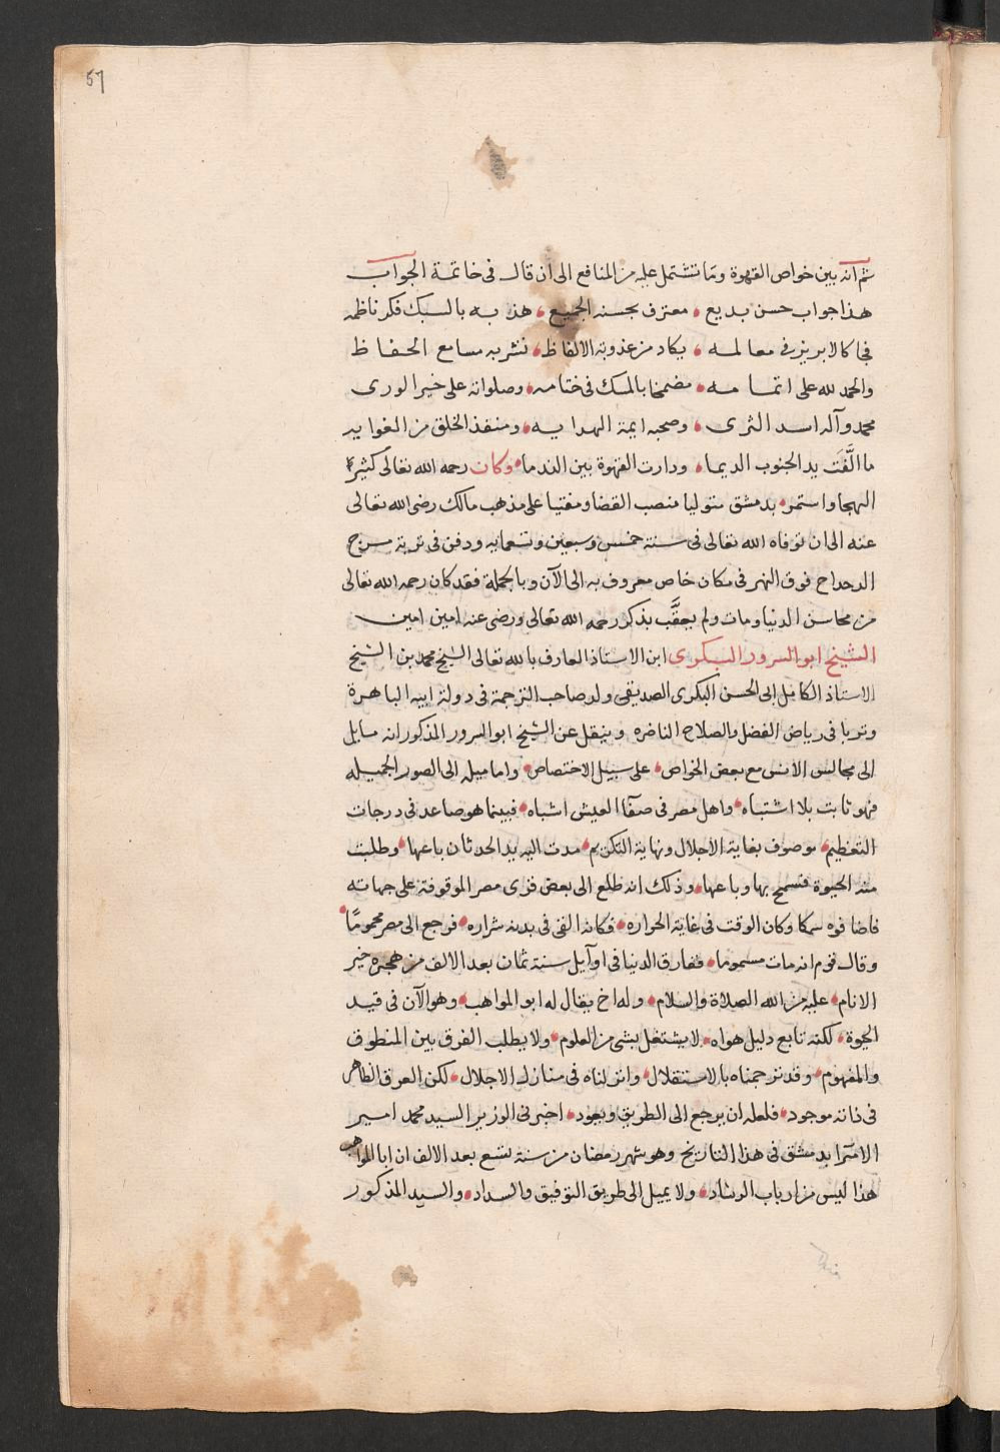 57
ثم انه بين خواص القهوة وما تشتمل عليه من المنافع الى ان قال فى خاتمة الجواب
هذا جواب حسن بديع • معترف بحسنه الجميع • هذبه بالسبك فكر ناظمه
فجا كالابريز فى معالمه • يكاد من عذوبة الالفاظ • تشربه مسامع الحفاظ
والحمد لله على اتمامه • مضمخا بالمسك فى ختامه • وصلواته على خير الورى
محمد وآله اسد الثرى • وصحبه ايمة الهدايه • ومنقذ الخلق من الغوايه
ما الَّفَت يد الجنوب الديما • ودارت القهوة بين الندما • وكان رحمه الله تعالى كثير
الهجا واستمر • بدمشق متوليا منصب القضا ومفتيا على مذهب مالك رضى الله تعالى
عنه الى ان توفاه الله تعالى فى سنة خمس وسبعين وتسعمايه ودفن فى تربة مرج
الدحداح فوق النهر فى مكان خاص معروف به الى الآن وبالجملة فقد كان رحمه الله تعالى
من محاسن الدنيا ومات ولم يعقَّب بذكر رحمه الله تعالى ورضى عنه امين امين
الشيخ ابو السرور البكرى ابن الاستاذ العارف بالله تعالى الشيخ محمد بن الشيخ
الاستاذ الكامل ابى الحسن البكرى الصديقى ولد صاحب الترجمة فى دولة ابيه الباهرة
وتربا فى رياض الفضل والصلاح الناضره وينقل عن الشيخ ابو السرور المذكور انه مايل
الى مجالس الانس مع بعض الخواص • على سبيل الاختصاص • واما ميله الى الصور الجميله
فهو ثابت بلا اشتباه • واهل مصر فى صفآ العيش اشباه • فبينما هو صاعد فى درجات
التعظيم • موصوف بغاية الاجلال ونهاية التكريم • مدت اليه يد الحدثان باعها • وطلبت
منه الحيوة فسمح بها وباعها • وذلك انه طلع الى بعض قرى مصر الموقوفة على جهاته
فاضافوه سمكا وكان الوقت فى غاية الحراره • فكانه القى فى بدنه شراره • فرجع الى مصر محمومًا •
وقال قوم انه مات مسموما • ففارق الدنيا فى اوآيل سنة ثمان بعد الالف من هجرة خير
الانام • عليه من الله الصلاة والسلام • وله اخ يقال له ابو المواهب • وهو الآن فى قيد
الحيوة • لكنه تابع دليل هواه • لا يشتغل بشى من العلوم • ولا يطلب الفرق بين المنطوق
والمفهوم • وقد ترجمناه بالاستقلال • وانزلناه فى منازل الاجلال • لكن العرق الطاهر
فى ذاته موجود • فلعله ان يرجع الى الطريق ويعود • اخبرنى الوزير السيد محمد امير
الامرآ بدمشق فى هذا التاريخ وهو شهر رمضان من سنة تسع بعد الالف ان ابا المواهب
هذا ليس من ارباب الرشاد • ولا يميل الى طريق التوفيق والسداد • والسيد المذكور